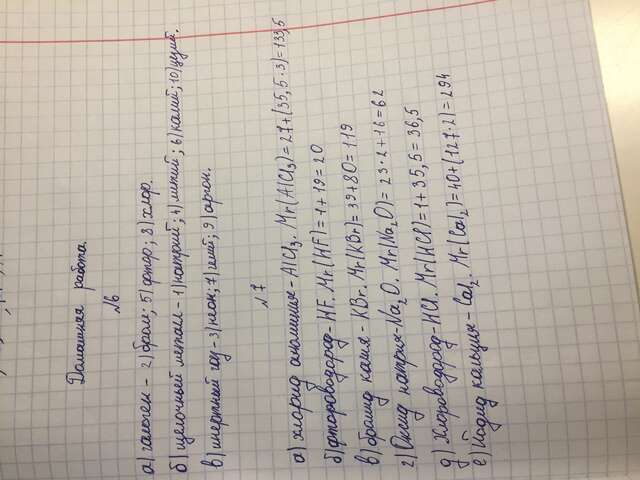 Домашняя работа.
№6
а) галоген - 2) бром; 5) фтор; 8) хлор.
б) щелочный металл - 1) натрий; 4) литий; 6) калий; 10) цезий.
в) инертный газ - 3) неон; 7) гелий; 9) аргон.
№7
а) хлорид алюминия - AlCl₃. Mr(AlCl₃) = 27+(35,5·3)=133,5
б) фтороводород - HF. Mr(HF) = 1+19=20
в) бромид калия - KBr. Mr(KBr)=39+80=119
г) Оксид натрия - Na₂O. Mr(Na₂O)= 23·2+16=62
д) Хлороводород - HCl. Mr(HCl)=1+35,5=36,5
е) Йодид кальция - CaI₂. Mr(CaI₂)=40+(127·2)=294